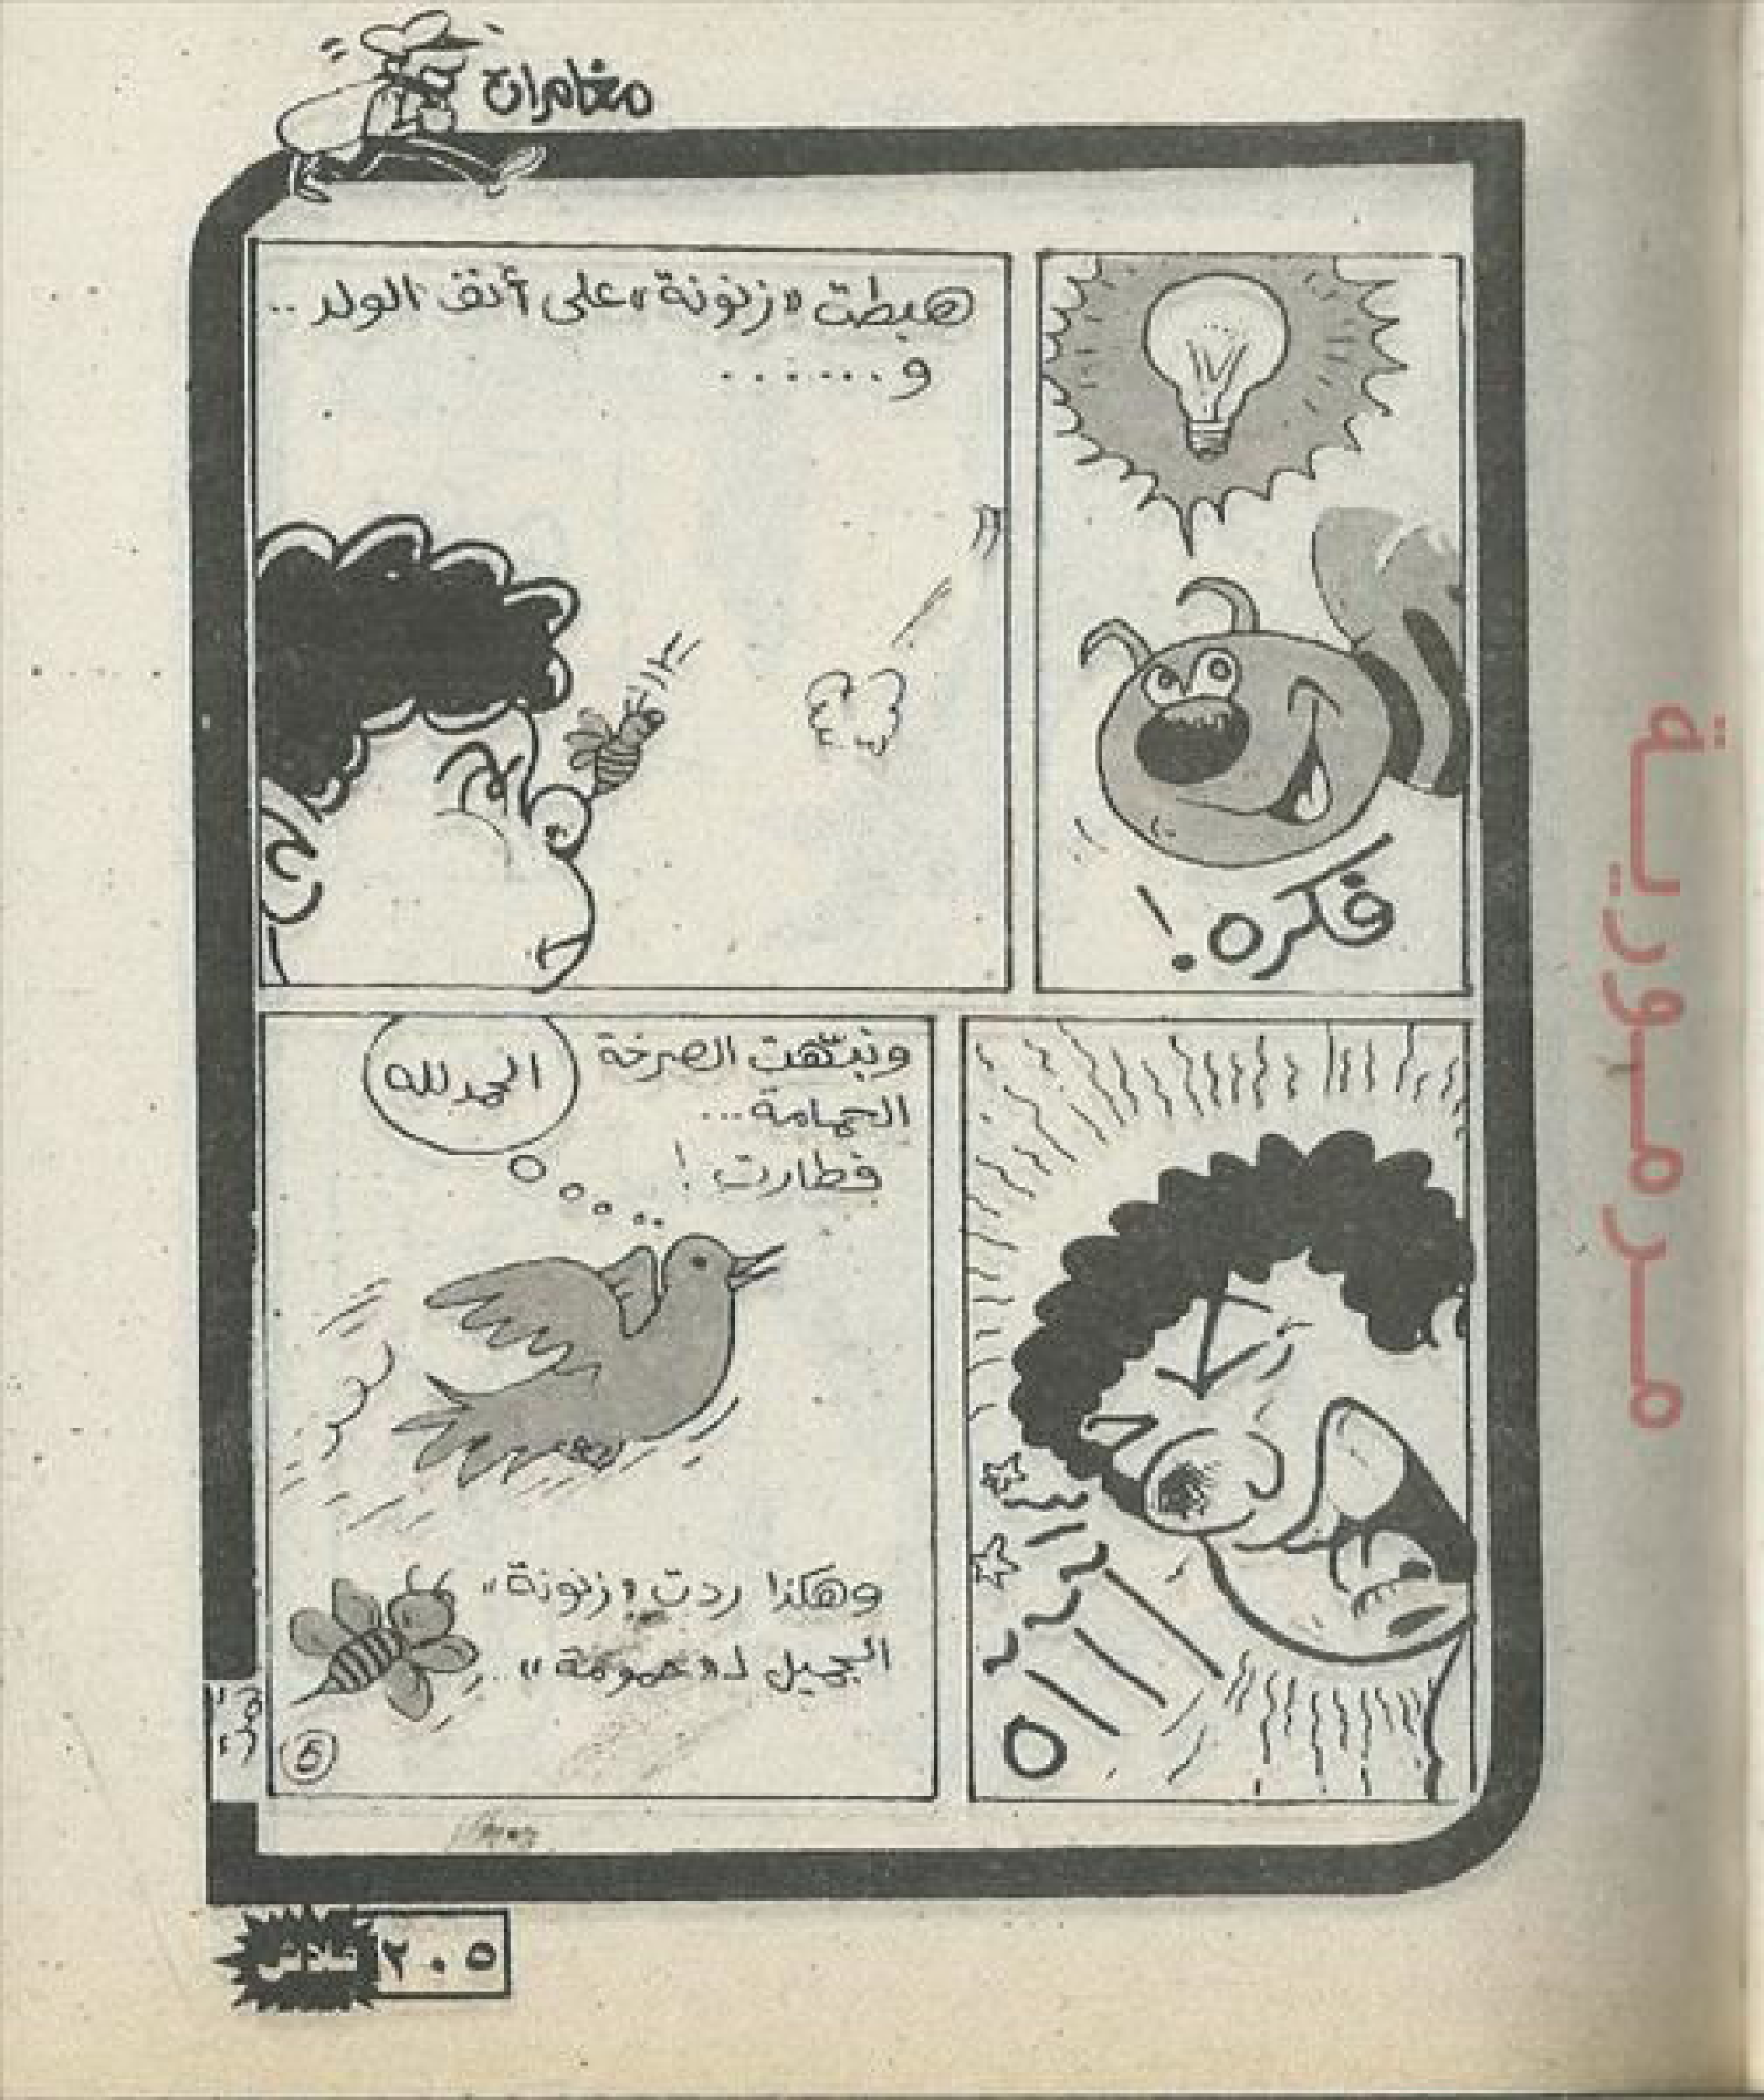 مغامرات
فكره!
هبطت «زنونة» على أنف الولد ..
و.......
ونبّهت الصرخة
الحمامة...
فطارت!
الحمد لله
وهكذا ردت «زنونة»
الجميل لـ«حمومة»..
5
٢٠٥
فلاش
مرمورية